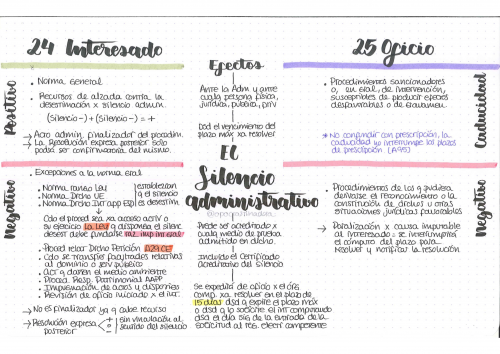 24 Interesado
Positivo
• Norma General
• Recursos de alzada contra la
desestimación x silencio admin.
(Silencio -) + (Silencio -) = +
→ Acto admin. finalizador del procedim.
→ La Resolución Expresa posterior solo
podrá ser confirmatoria del mismo.
Negativo
Excepciones a la norma gral
• Norma rango Ley
• Norma Drcho UE
• Norma Drcho Int app Esp
establezcan
q si silencio
es desestim
Cdo el proced sea xa acceso activ o
su ejercicio la Ley q disponga el silenc
desest debe fundarse raz. imp int gral
• Proced relat Drcho Petición A29 CE
• Cdo se transfier facultades relativas
al dominio o serv público
• Act q dañen el medio ambiente
• Proced. Resp. Patrimonial AAPP
• Impugnación de actos y disposiones
• Revisión de oficio iniciado x el int.
→ No es finalizador ya q cabe recurso
→ Resolución expresa
posterior
+
-
sin vinculación al
sentido del silencio
Efectos
Ante la Adm y ante
cualq persona física,
jurídica, pública, priv
Dsd el vencimiento del
plazo máx xa resolver
El
Silencio
administrativo
Puede ser acreditado x
cualq medio de prueba
admitido en dcho.
Incluido el Certificado
acreditativo del silencio
Se expedirá de oficio x el órg
comp. xa resolver en el plazo de
15 días dsd q expire el plazo máx
o dsd q lo solicite el int computando
dsd el día sig de la entrada de la
solicitud al reg. electr competente
25 Oficio
Caducidad
• Procedimientos sancionadores
o, en gral, de intervención,
susceptibles de producir efectos
desfavorables o de gravamen.
* No confundir con prescripción, la
caducidad no interrumpe los plazos
de prescripción (A95)
Negativo
• Procedimientos de los q pudiera
derivarse el reconocimiento o la
constitución de dchos u otras
situaciones jurídicas favorables
→ Paralización x causa imputable
al interesado: se interrumpirá
el cómputo del plazo para
resolver y notificar la resolución